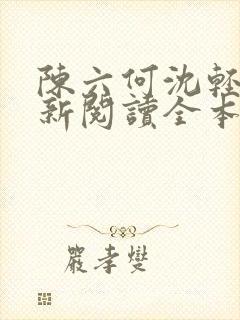 陳六何沈輕
新閱讀全本
嚴孝燮